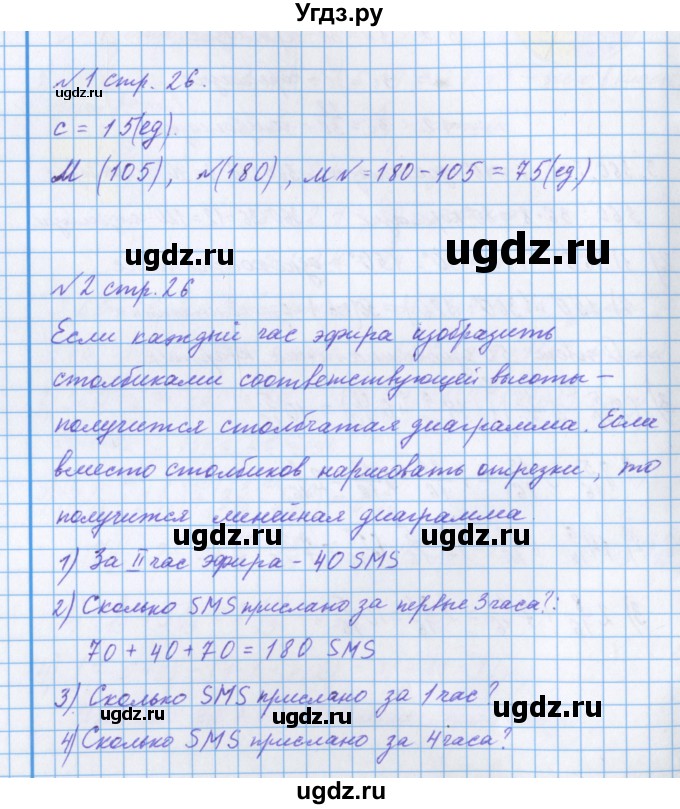 Угдз.ру
№1 стр. 26.
ugdz.ru
c = 15(ед).
М (105), N(180), MN = 180 - 105 = 75(ед.)
ugdz.ru ugdz.ru
№2 стр. 26
Если каждый час эфира изобразить
столбиками соответствующей высоты –
получится столбчатая диаграмма. Если
вместо столбиков нарисовать отрезки, то
получится линейная диаграмма
ugdz.ru ugdz.ru
1) За II час эфира – 40 SMS
2) Сколько SMS прислано за первые 3 часа?:
ugdz.ru ugdz.ru
70 + 40 + 70 = 180 SMS
3) Сколько SMS прислано за 1 час?
ugdz.ru ugdz.ru
4) Сколько SMS прислано за 4 часа?
ugdz.ru ugdz.ru